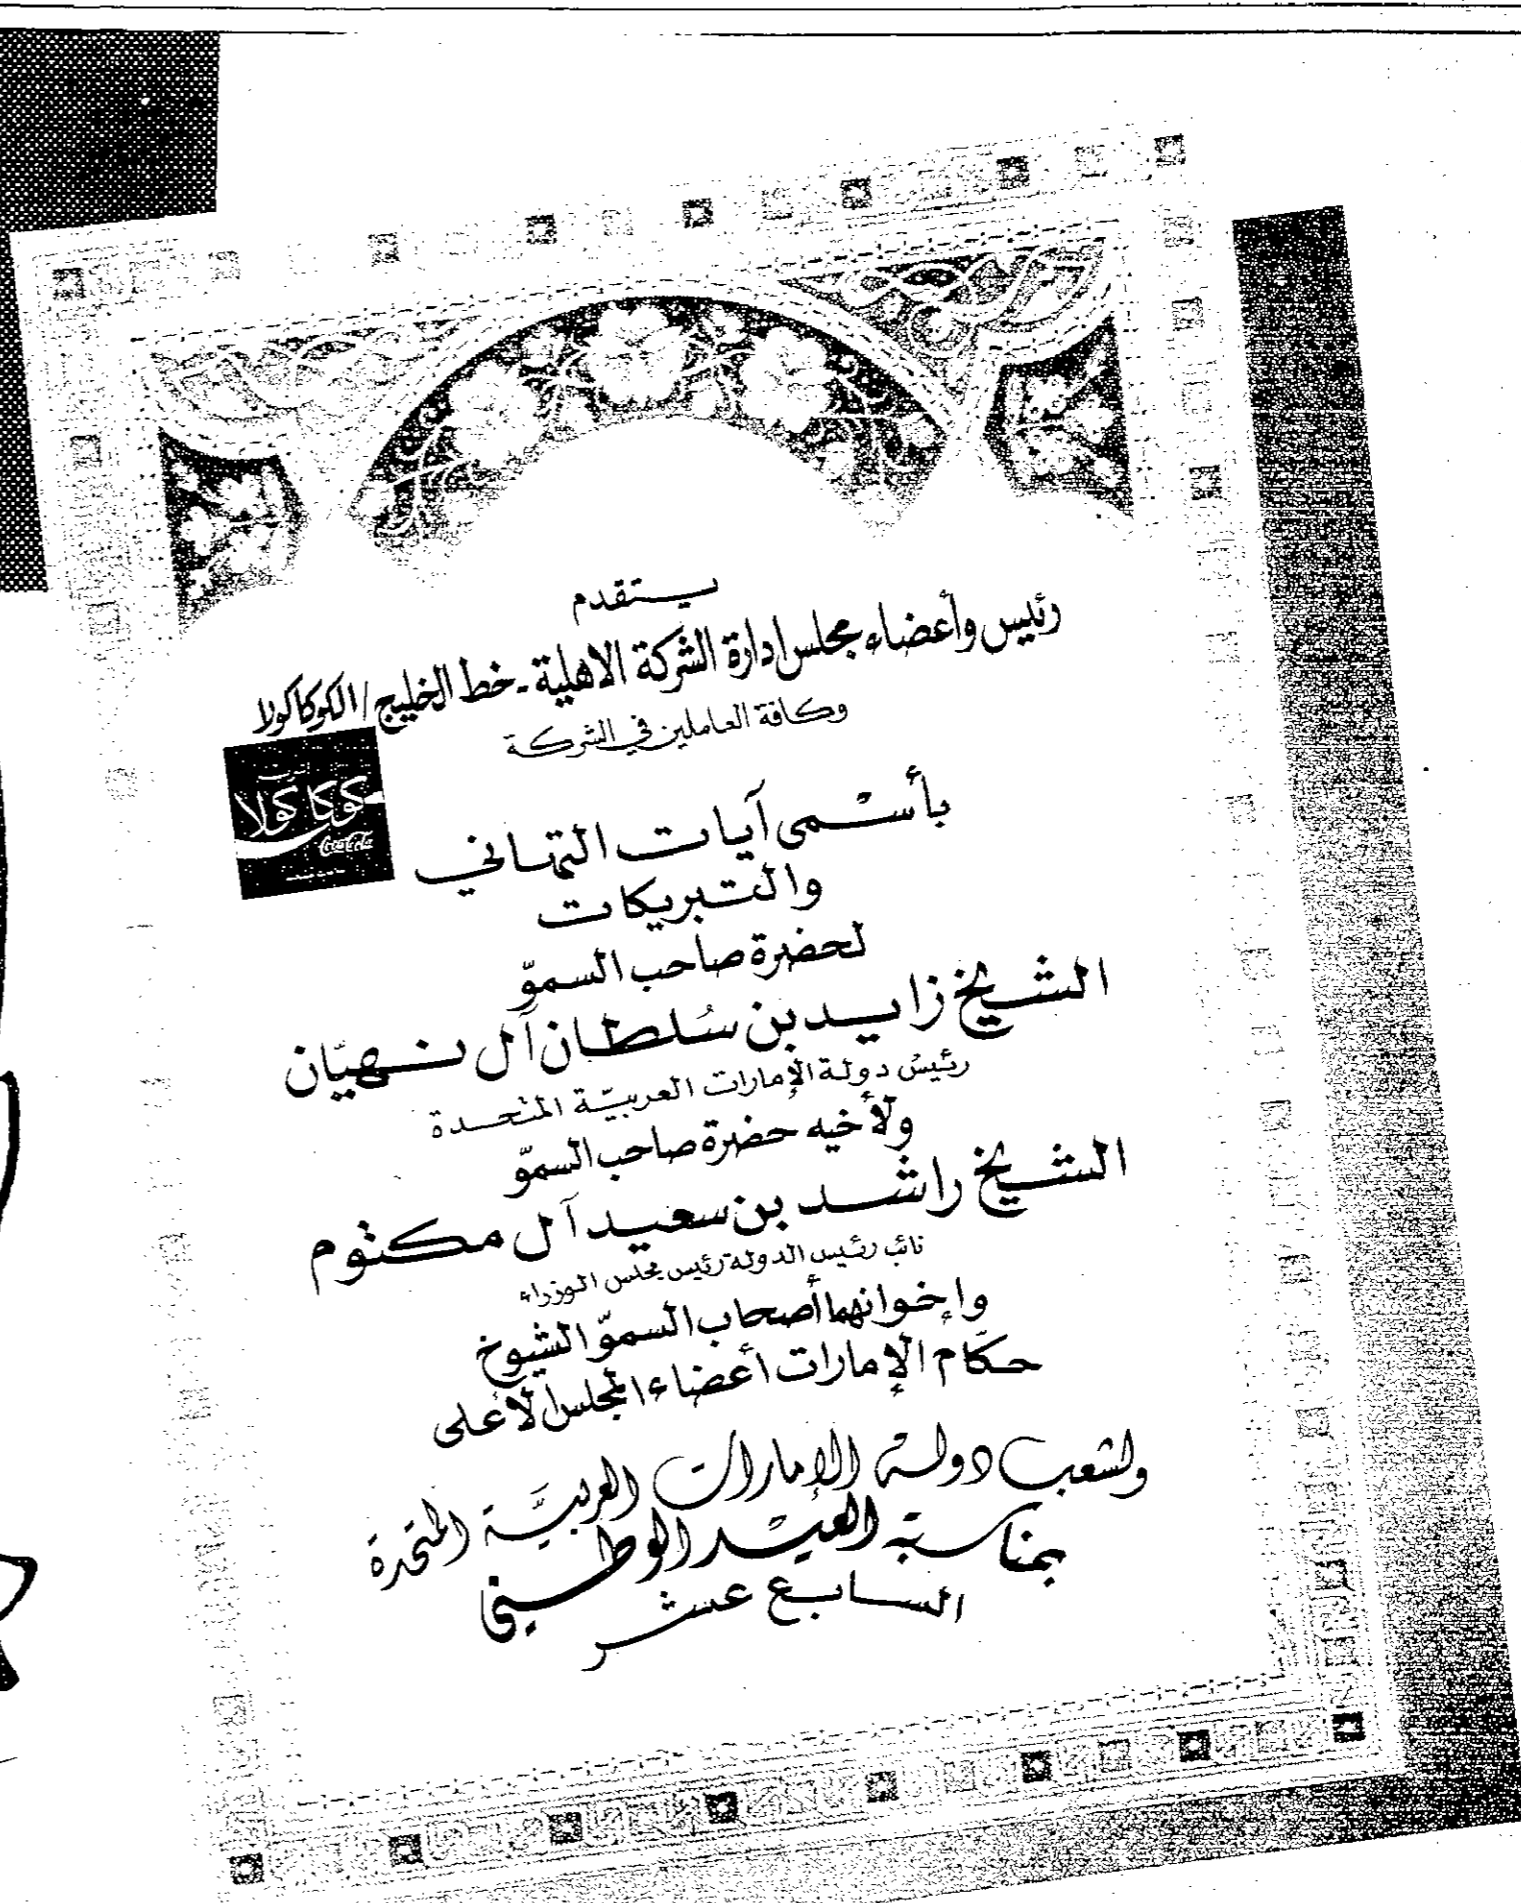 يتقدم
رئيس وأعضاء مجلس إدارة الشركة الاهلية - خط الخليج / الكوكاكولا
وكافة العاملين في الشركة
كوكاكولا
Coca-Cola
بأسمى آيات التهاني
والتبريكات
لحضرة صاحب السموّ
الشيخ زايد بن سُلطان آل نهيّان
رئيس دولة الإمارات العربيّة المتحدة
ولأخيه حضرة صاحب السموّ
الشيخ راشد بن سعيد آل مكتوم
نائب رئيس الدولة رئيس مجلس الوزراء
وإخوانهما أصحاب السموّ الشيوخ
حكّام الإمارات أعضاء المجلس الأعلى
ولشعب دولة الإمارات العربيَّة المتحدة
بمناسبة العيد الوطني
السابع عشر